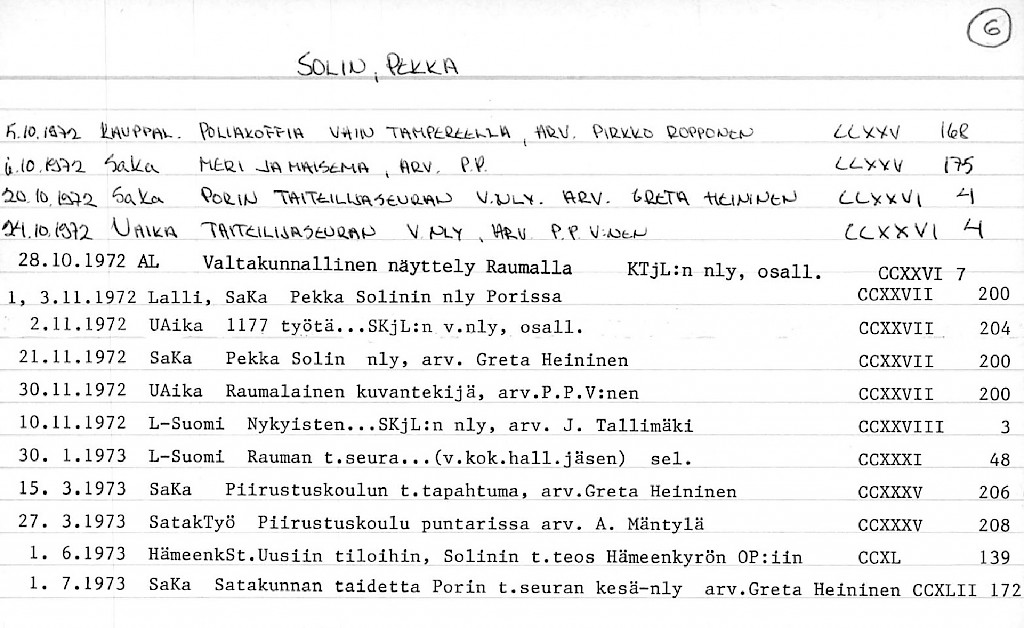 6
SOLIN, PEKKA
5.10.1972 KAUPPAL. POLIAKOFFIA VAIN TAMPEREELLA, ARV. PIRKKO ROPPONEN CCXXV 168
6.10.1972 SaKa MERI JA MAISEMA, ARV. P.P. CCXXV 175
20.10.1972 SaKa PORIN TAITEILIJASEURAN V.NLY. ARV. GRETA HEININEN CCXXVI 4
24.10.1972 UAIKA TAITEILIJASEURAN V.NLY, ARV P.P.V:NEN CCXXVI 4
28.10.1972 AL Valtakunnallinen näyttely Raumalla KTjL:n nly, osall. CCXXVI 7
1, 3.11.1972 Lalli, SaKa Pekka Solinin nly Porissa CCXXVII 200
2.11.1972 UAika 1177 työtä...SKjL:n v.nly, osall. CCXXVII 204
21.11.1972 SaKa Pekka Solin nly, arv. Greta Heininen CCXXVII 200
30.11.1972 UAika Raumalainen kuvantekijä, arv.P.P.V:nen CCXXVII 200
10.11.1972 L-Suomi Nykyisten...SKjL:n nly, arv. J. Tallimäki CCXXVIII 3
30. 1.1973 L-Suomi Rauman t.seura...(v.kok.hall.jäsen) sel. CCXXXI 48
15. 3.1973 SaKa Piirustuskoulun t.tapahtuma, arv.Greta Heininen CCXXXV 206
27. 3.1973 SatakTyö Piirustuskoulu puntarissa arv. A. Mäntylä CCXXXV 208
1. 6.1973 HämeenkSt.Uusiin tiloihin, Solinin t.teos Hämeenkyrön OP:iin CCXL 139
1. 7.1973 SaKa Satakunnan taidetta Porin t.seuran kesä-nly arv.Greta Heininen CCXLII 172